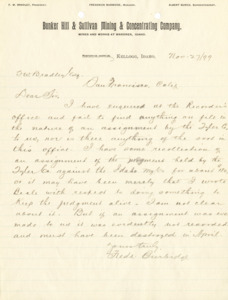 Bunker Hill & Sullivan Mining & Concentrating Company,
MINES AND WORKS AT WARDNER, IDAHO
KELLOGG, IDAHO, Nov. 23/99
San Francisco, Calif.
Dear Sir
I have enquired at the Recorder's
office and fail to find anything on file in
the nature of an assignment by the Tyler Co
to us, nor is there anything of the sort in
this office. I have some recollection of
an assignment of the judgment held by the
Tyler Co against the Idaho
or it may have been merely that I wrote
with respect to doing something to
keep the judgment alive. I am not clear
about it. But if an assignment was ever
made to us it was evidently not recorded
and must have been destroyed in April.
Yours truly,
Burbidge